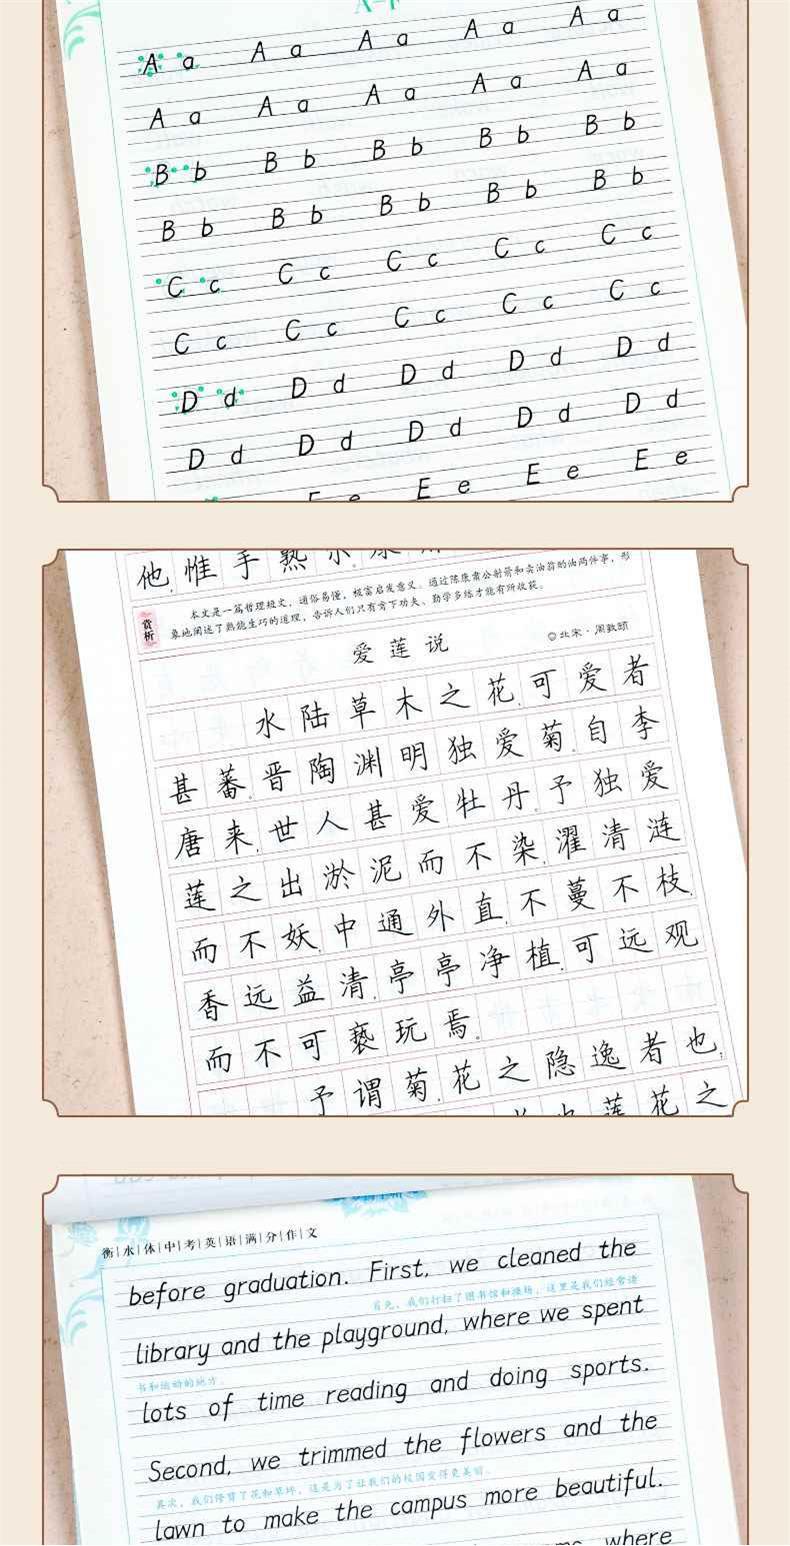 A a A a A a A a A a
A a A a A a A a A a
B b B b B b B b B b
B b B b B b B b B b
C c C c C c C c C c
C c C c C c C c C c
D d D d D d D d D d
D d D d D d D d D d
E e E e E e E e
他，惟手熟尔。康
赏析
本文是一篇哲理短文，通俗易懂，极富启发意义。通过陈康肃公射箭和卖油翁酌油两件事，形
象地阐述了熟能生巧的道理，告诉人们只有肯下功夫、勤学多练才能有所收获。
爱莲说
◎北宋·周敦颐
水陆草木之花，可爱者
甚蕃。晋陶渊明独爱菊。自李
唐来，世人甚爱牡丹。予独爱
莲之出淤泥而不染，濯清涟
而不妖，中通外直，不蔓不枝，
香远益清，亭亭净植，可远观
而不可亵玩焉。
予谓菊，花之隐逸者也；
莲花之
衡|水|体|中|考|英|语|满|分|作|文
before graduation. First, we cleaned the
首先，我们打扫了图书馆和操场，这里是我们经常读
library and the playground, where we spent
书和运动的地方。
lots of time reading and doing sports.
Second, we trimmed the flowers and the
其次，我们修剪了花和草坪，这是为了让我们的校园变得更美丽。
lawn to make the campus more beautiful.
where